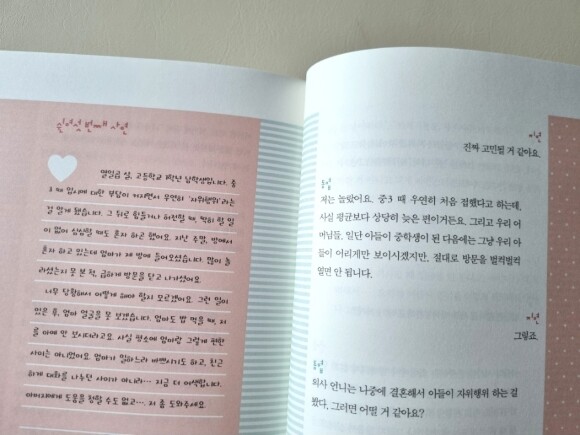 열여섯 번째 사연
열일곱 살, 고등학교 1학년 남학생입니다. 중
3 때 입시에 대한 부담이 커지면서 우연히 '자위행위'라는
걸 알게 됐습니다. 그 뒤로 힘들거나 허전할 때, 딱히 할 일
이 없어 심심할 때도 혼자 하곤 했어요. 지난 주말, 방에서
혼자 하고 있는데 엄마가 제 방에 들어오셨습니다. 많이 놀
라셨는지 못 본 척, 급하게 방문을 닫고 나가셨어요.
너무 당황해서 어떻게 해야 할지 모르겠어요. 그런 일이
있은 후, 엄마 얼굴을 못 보겠습니다. 엄마도 밥 먹을 때, 저
를 아예 안 보시더라고요. 사실 평소에 엄마랑 그렇게 편한
사이는 아니었어요. 엄마가 일하느라 바쁘시기도 하고, 친근
하게 대화를 나누던 사이가 아니라… 지금 더 어색합니다.
아버지에게 도움을 청할 수도 없고… 저 좀 도와주세요.
진짜 고민될 거 같아요.
저는 놀랐어요. 중3 때 우연히 처음 접했다고 하는데,
사실 평균보다 상당히 늦은 편이거든요. 그리고 우리 어
머님들, 일단 아들이 중학생이 된 다음에는 그냥 우리 아
들이 어리게만 보이시겠지만, 절대로 방문을 벌컥벌컥
열면 안 됩니다.
그렇죠.
의사 언니는 나중에 결혼해서 아들이 자위행위 하는 걸
봤다, 그러면 어떨 거 같아요?